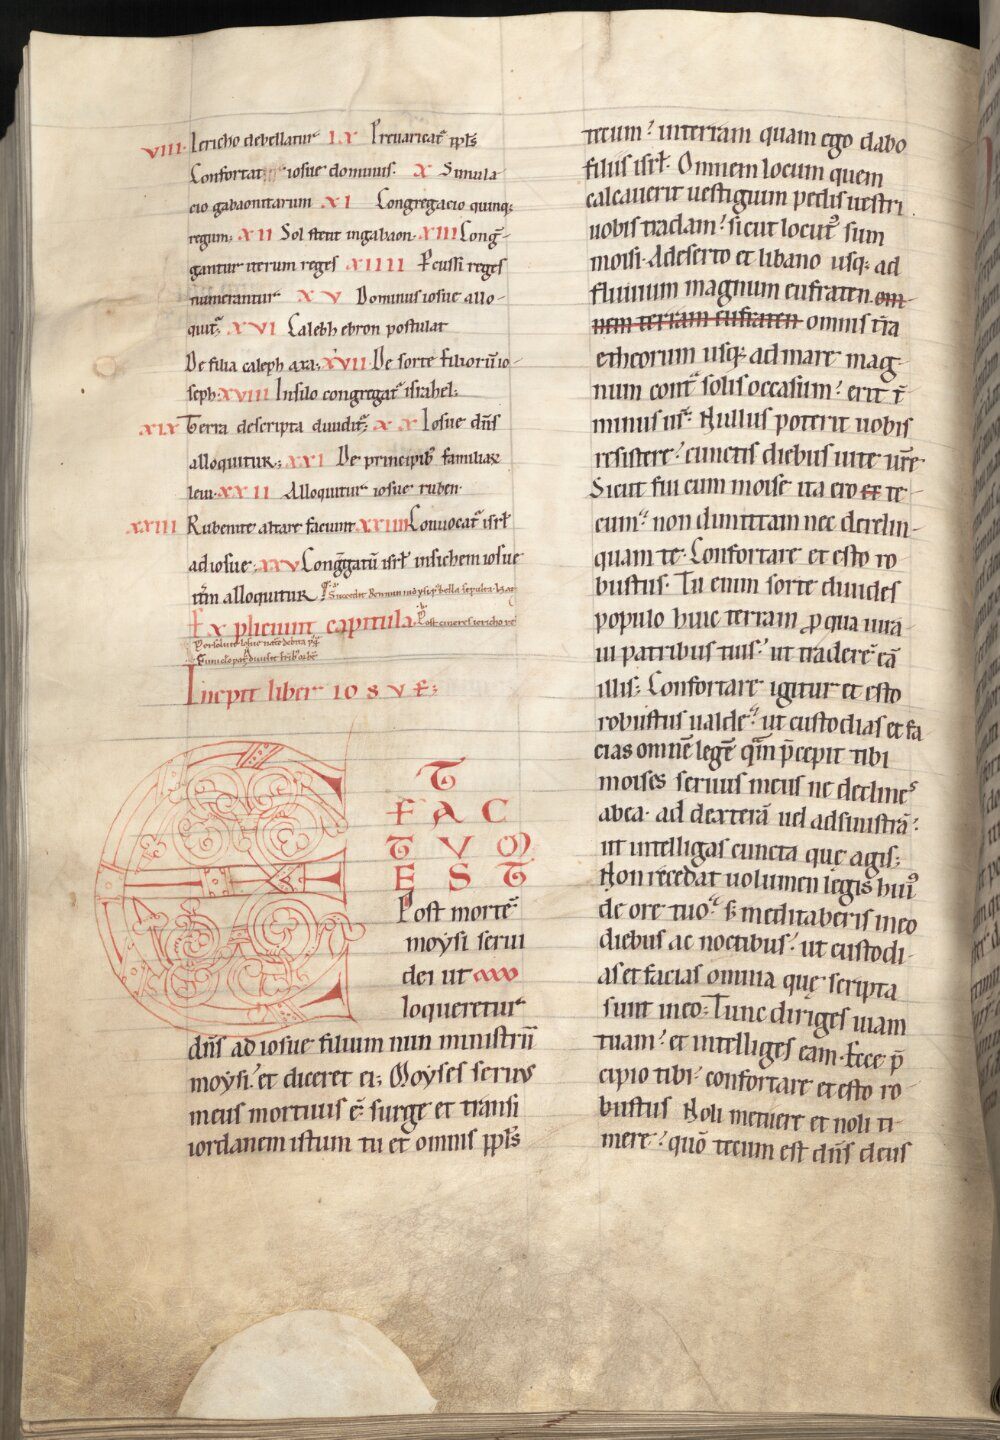 VIII. Iericho debellatur IX Preuaricat̄ ppl̄s
Confortat iosue dominus. X Simula
cio gabaonitarum XI Congregacio quinq;
regum; XII Sol stetit ingabaon. XIII Long̅-
gantur iterum reges XIIII Pcussi reges
numerantur XV Dominus iosue allo-
quit̄. XVI Calebh ebron postulat
De filia caleph axa; XVII De sorte filiorū io-
seph. XVIII Insilo congregat̄ israhel;
XIX Terra descripta diuidit̄; XX Iosue dn̄s
alloquitur; XXI De principib; familiar̄
leui. XXII Alloquitur iosue ruben.
XXIII Rubenite altare faciunt XXIIII Conuocat̄ isrl̄
ad iosue; XXV Cong̅gatū isrl̄ insichem iosue
itr̄m alloquitur
Expliciunt capitula. Post cineres iericho
Incipit liber IOSVE;
ET
FAC
TVM
EST
Post morte̅
moysi serui
dei ut
loqueretur
dn̄s ad iosue filium nun ministrū
moysi. et diceret ei; Moyses seruus
meus mortuus ē. surge et transi
iordanem istum tu et omnis ppl̄s
tecum. interram quam ego dabo
filiis isrl̄. Omnem locum quem
calcauerit uestigium pedis uestri
uobis tradam. sicut locut᷒ sum
moisi. Adeserto et libano usq; ad
fluuium magnum eufraten. om-
nem terram eufraten omnis tr̄a
etheorum usq; ad mare mag-
num cont̄ solis occasum. erit t̄
minus ur̄. Nullus poterit uobis
resistere. cunctis diebus uite ur̄e
Sicut fui cum moise ita ero et te
cum. non dimittam nec derelin-
quam te. Confortare et esto ro
bustus. Tu enim sorte diuides
populo huic terram p qua iura
ui patribus tuis. ut tradere̅ eā
illis; Confortare igitur et esto
robustus ualde. ut custodias et fa
cias omnē legē quā p̄cepit tibi
moises seruus meus ne declines
abea. ad dexterā uel adsinistrā.
ut intelligas cuncta que agis;
Non recedat uolumen legis hui᷒
de ore tuo. s; meditaberis in eo
diebus ac noctibus. ut custodi-
as et facias omnia que scripta
sunt in eo; Tunc diriges uiam
tuam. et intelliges eam. Ecce p̄
cipio tibi. confortare et esto ro
bustus Noli metuere et noli ti-
mere. quō tecum est dn̄s deus